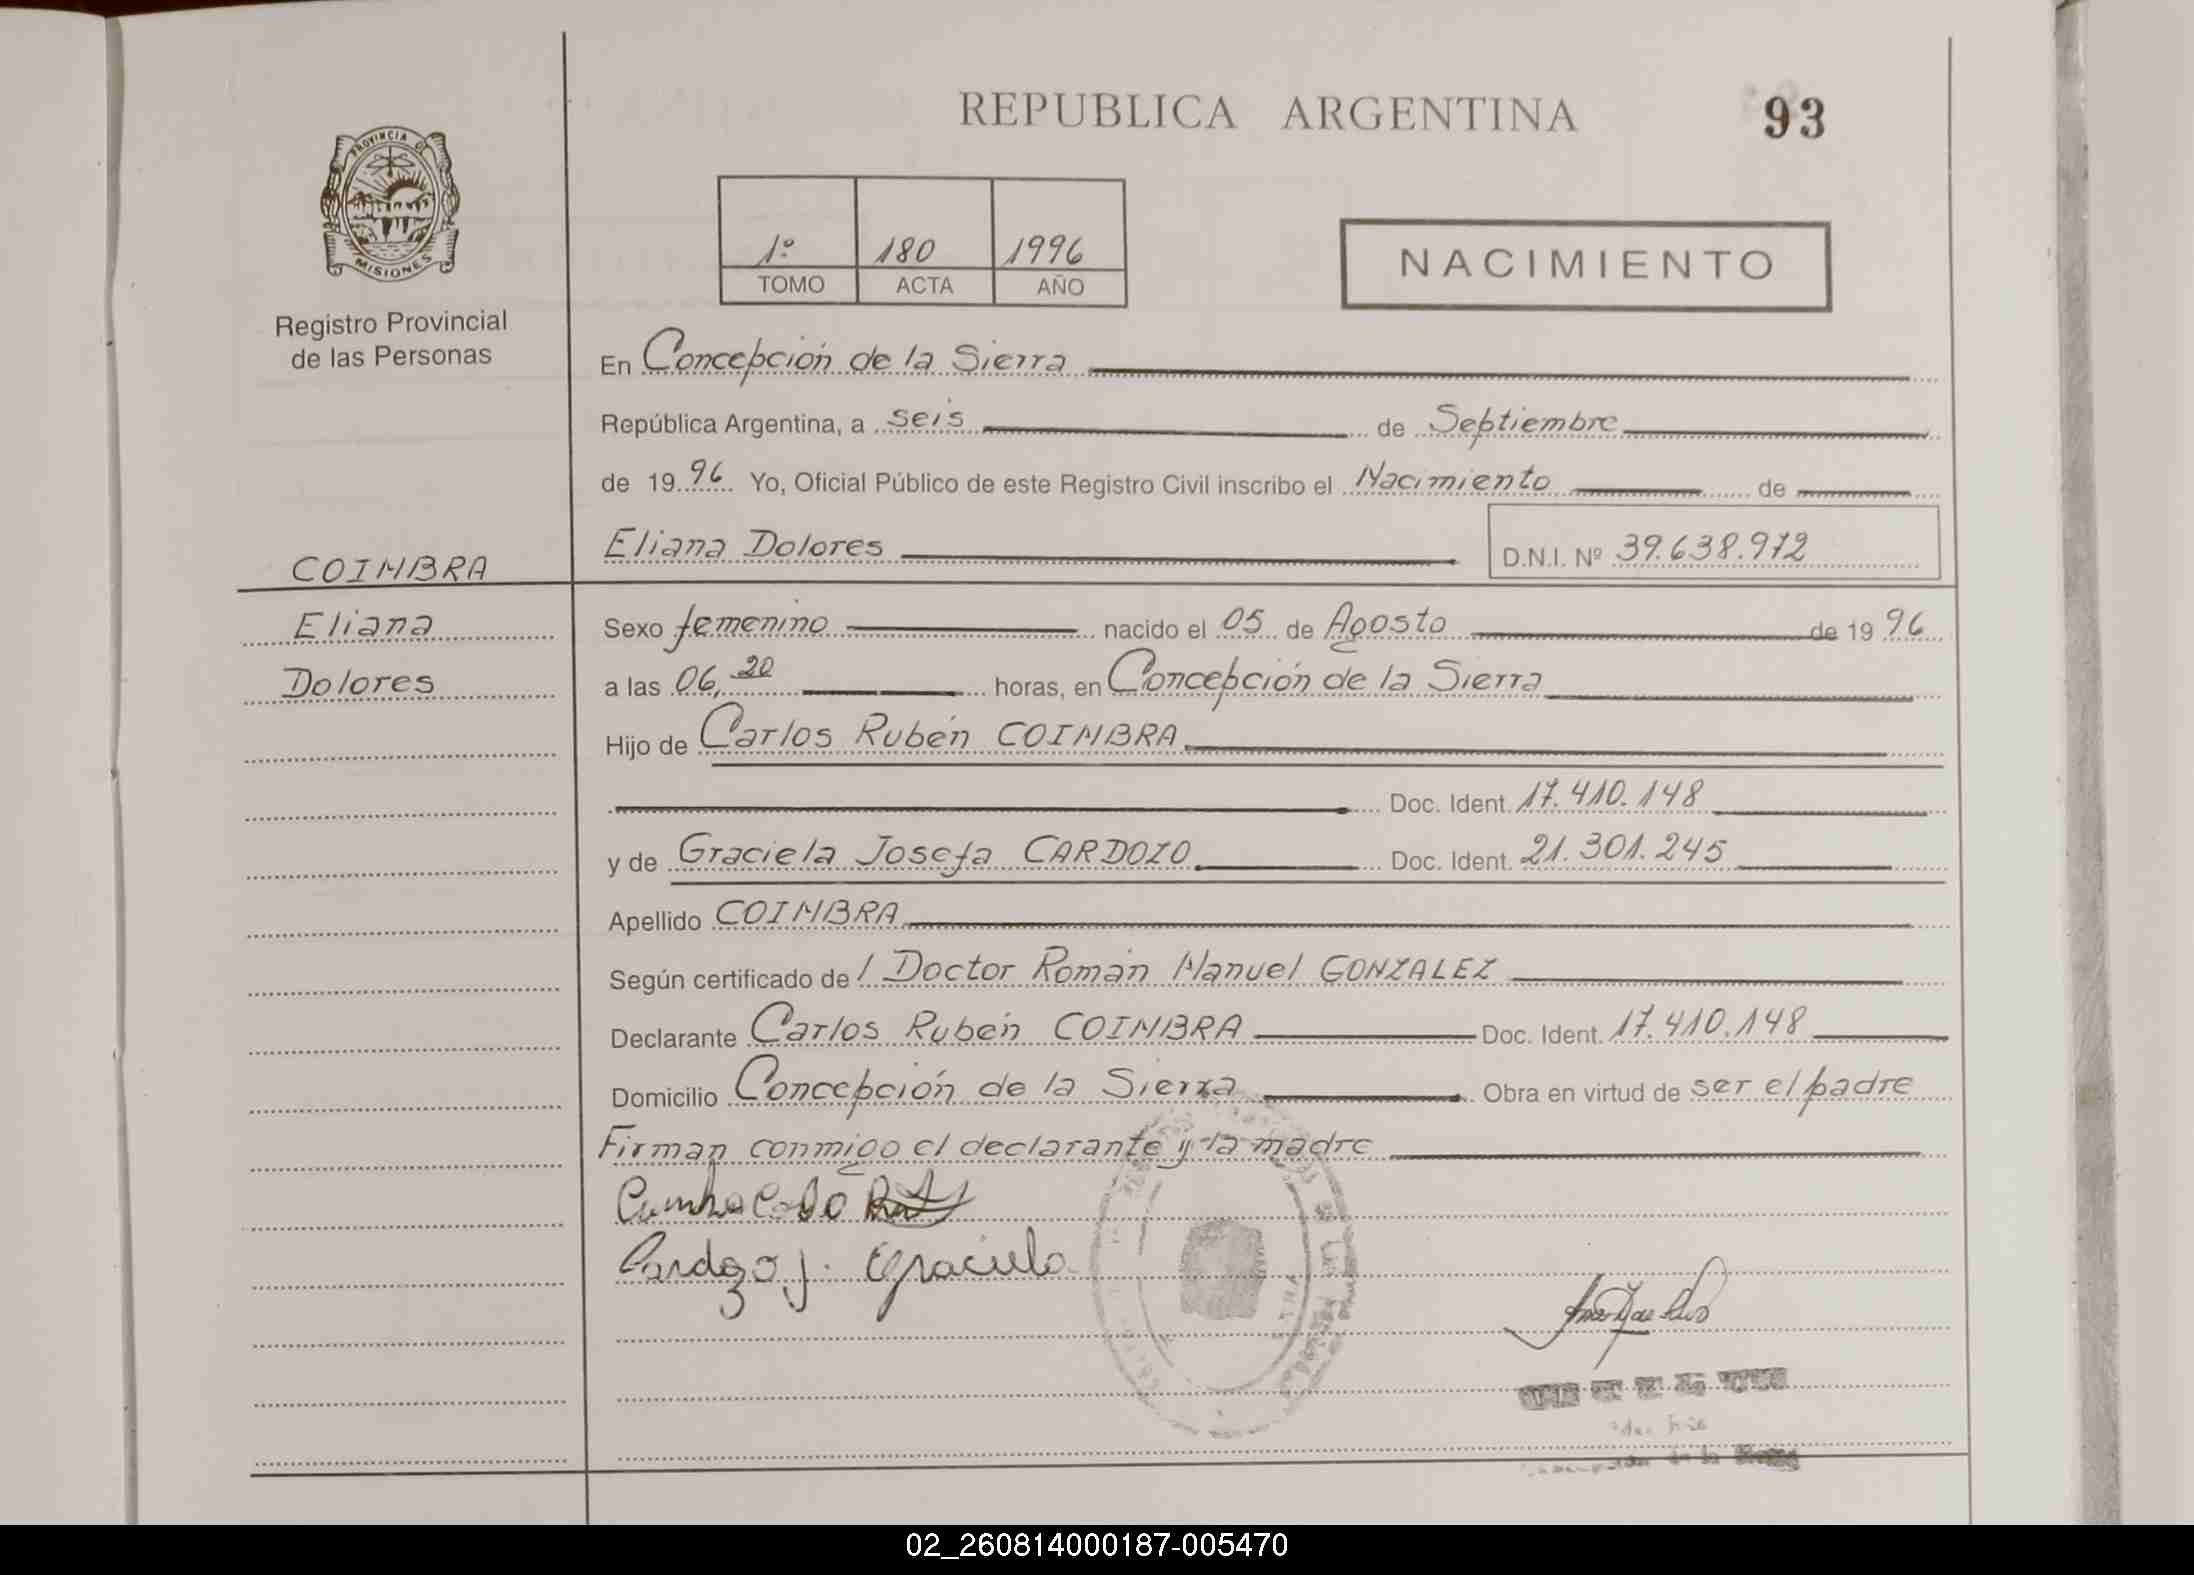 REPUBLICA ARGENTINA
93
PROVINCIA DE
MISIONES
Registro Provincial
de las Personas
1º 180 1996
TOMO ACTA AÑO
NACIMIENTO
En Concepción de la Sierra
República Argentina, a seis de Septiembre
de 19 96 Yo, Oficial Público de este Registro Civil inscribo el Nacimiento de
Eliana Dolores D.N.I. Nº 39.638.972
COIMBRA
Eliana
Dolores
Sexo femenino nacido el 05 de Agosto de 19 96
a las 06,20 horas, en Concepción de la Sierra
Hijo de Carlos Rubén COIMBRA
Doc. Ident. 17.410.148
y de Graciela Josefa CARDOZO Doc. Ident. 21.301.245
Apellido COIMBRA
Según certificado de l Doctor Román Manuel GONZALEZ
Declarante Carlos Rubén COIMBRA Doc. Ident. 17.410.148
Domicilio Concepción de la Sierra Obra en virtud de ser el padre
Firman conmigo el declarante y la madre
Cardozo J. Graciela
02_260814000187-005470